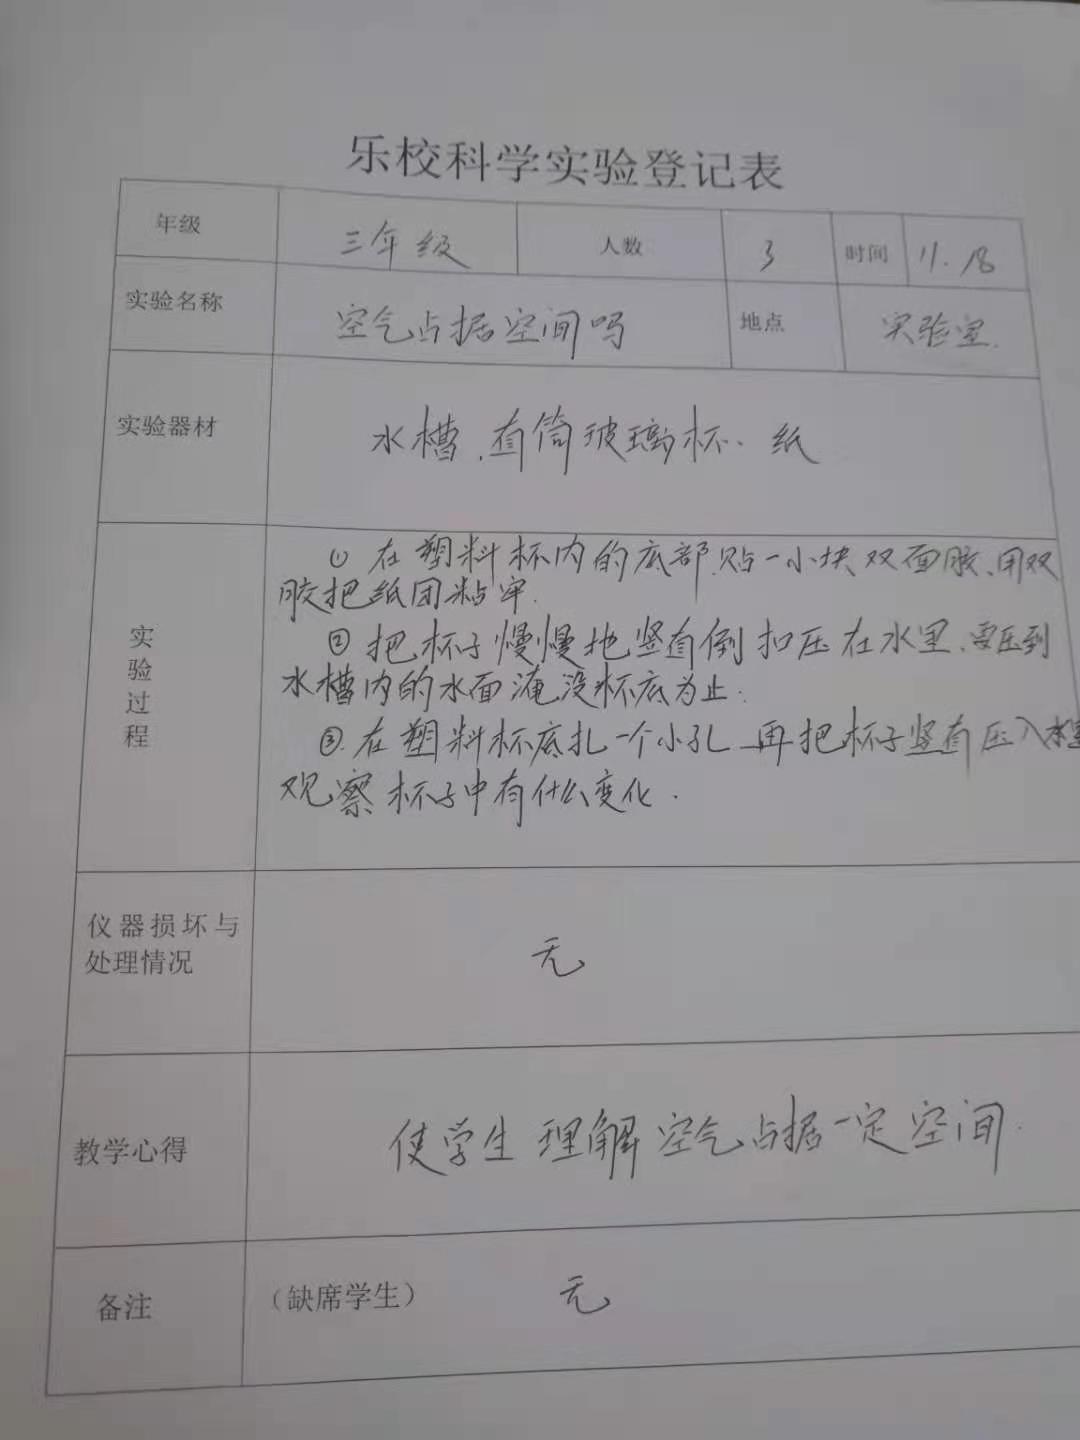 乐校科学实验登记表
年级 三年级 人数 3 时间 11.18
实验名称 空气占据空间吗 地点 实验室.
实验器材 水槽.直筒玻璃杯、纸
实验过程
① 在塑料杯内的底部.贴一小块双面胶、用双
胶把纸团粘牢.
② 把杯子慢慢地竖直倒扣压在水里、要压到
水槽内的水面淹没杯底为止.
③.在塑料杯底扎一个小孔 再把杯子竖直压入水里
观察杯子中有什么变化.
仪器损坏与
处理情况 无
教学心得 使学生理解空气占据一定空间.
备注 （缺席学生） 无